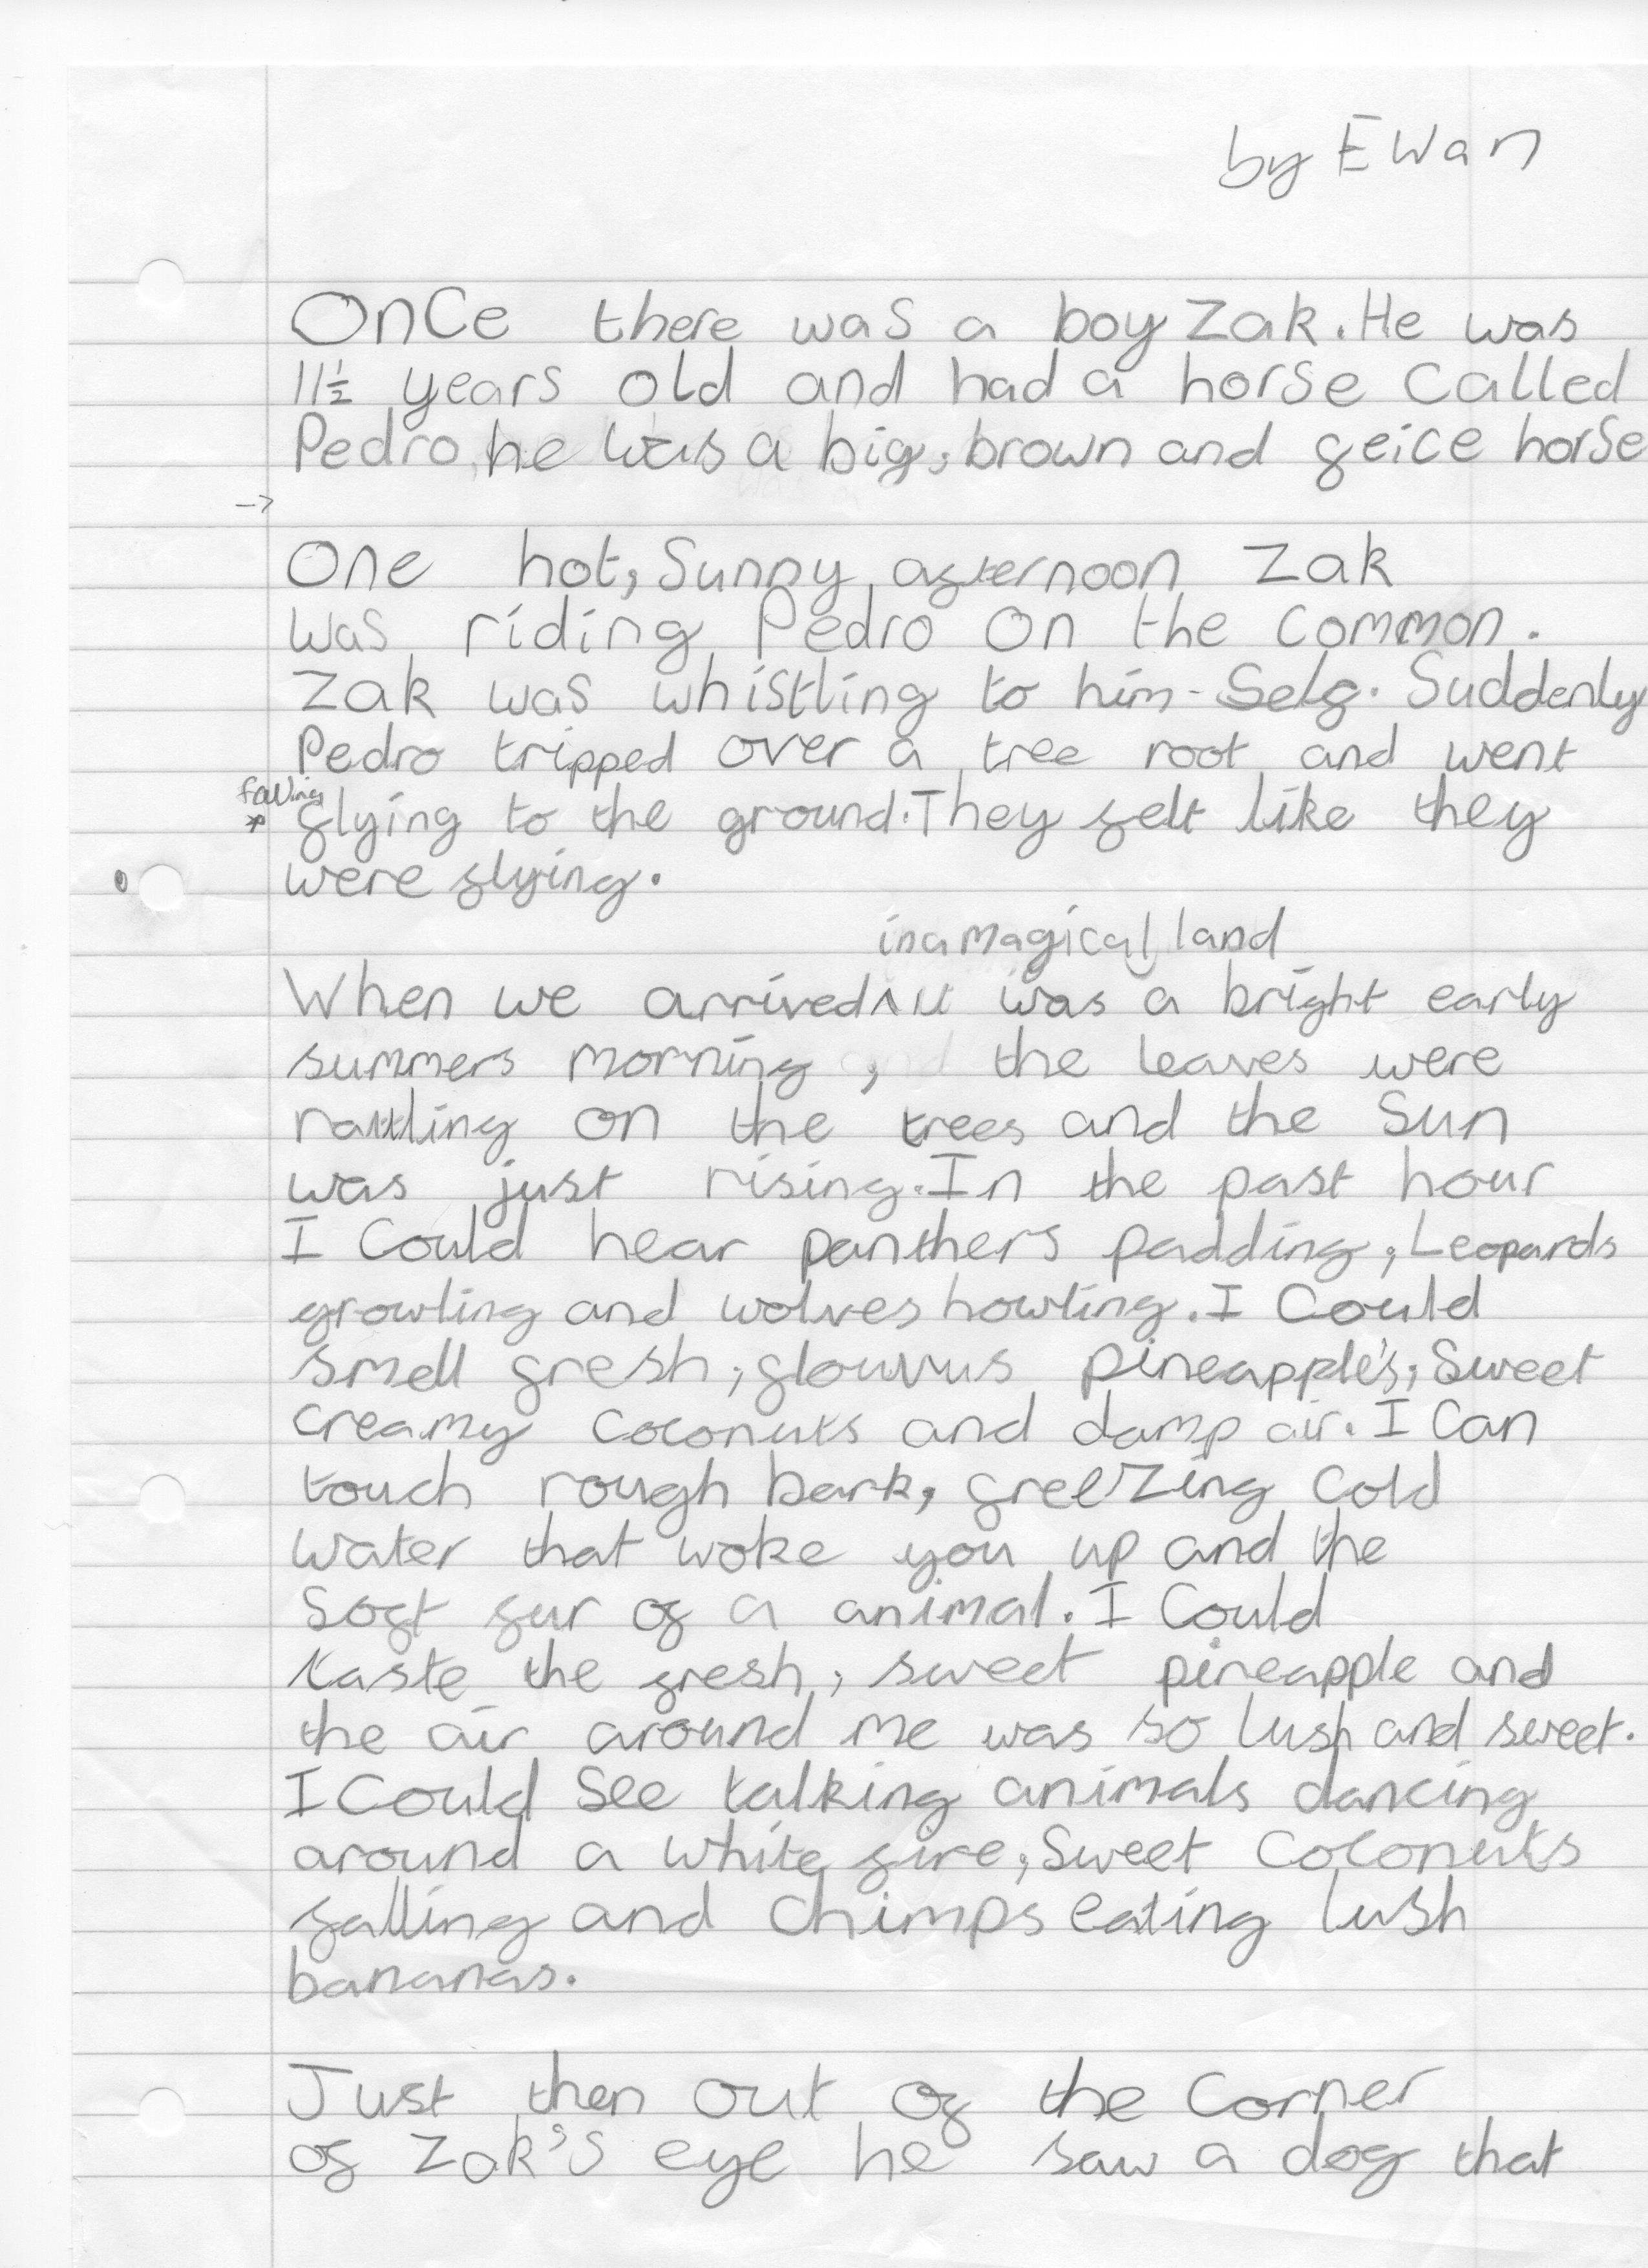 by Ewan
Once there was a boy Zak. He was
11½ years old and had a horse called
Pedro, he was a big, brown and feice horse
->
One hot, Sunny afternoon Zak
was riding Pedro on the common.
Zak was whistling to him-Self. Suddenly
Pedro tripped over a tree root and went
falling
* flying to the ground. They felt like they
were flying.
in a magical land
When we arrived ^ it was a bright early
summers morning, the leaves were
rattling on the trees and the Sun
was just rising. In the past hour
I Could hear panthers padding, Leopards
growling and wolves howling. I Could
smell fresh, flouvus pineapple's, Sweet
creamy coconuts and damp air. I Can
touch rough bark, freezing cold
water that woke you up and the
Soft fur of a animal. I Could
taste the fresh, sweet pineapple and
the air around me was so lush and sweet.
I Could See talking animals dancing
around a white fire, Sweet Coconuts
falling and chimps eating lush
bananas.
Just then out of the corner
of Zak's eye he saw a dog that